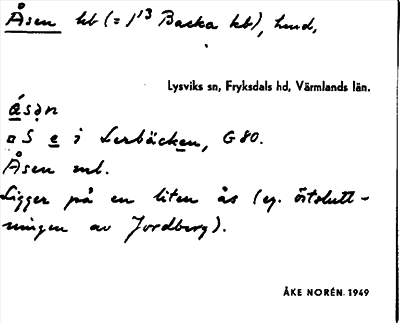 Åsen hb (= 1¹³ Backa hb), hmd,
Lysviks sn, Fryksdals hd, Värmlands län.
ásən
¤ S e i Lerbäcken, G 80.
Åsen ml.
Ligger på en liten ås (ej. östslutt-
ningen av Jordberg).
ÅKE NORÉN. 1949